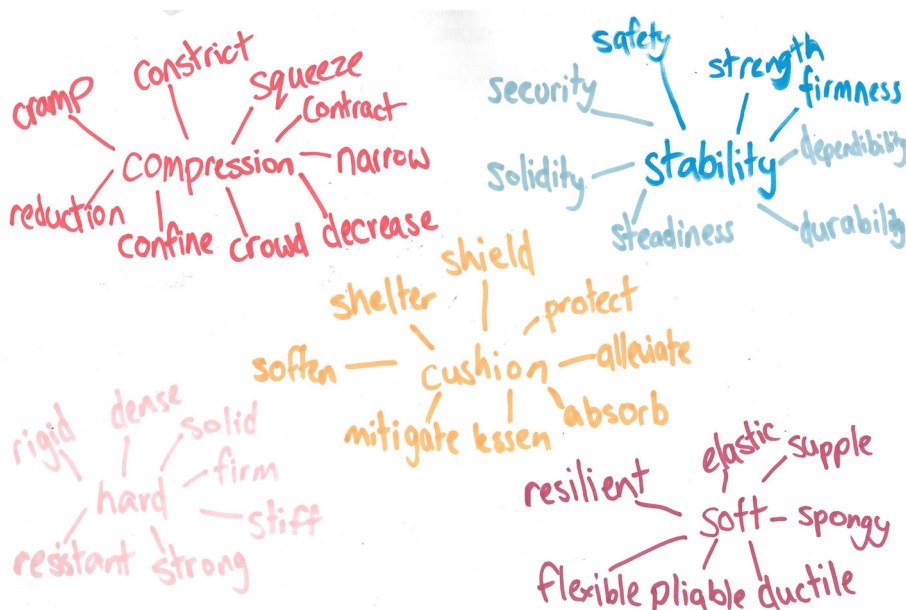 cramp
constrict
squeeze
contract
compression
narrow
reduction
confine
crowd
decrease
safety
strength
security
firmness
stability
dependibility
solidity
steadiness
durability
shield
shelter
protect
soften
cushion
alleviate
mitigate
lessen
absorb
rigid
dense
solid
firm
hard
stiff
resistant
strong
elastic
supple
resilient
soft
spongy
flexible
pliable
ductile